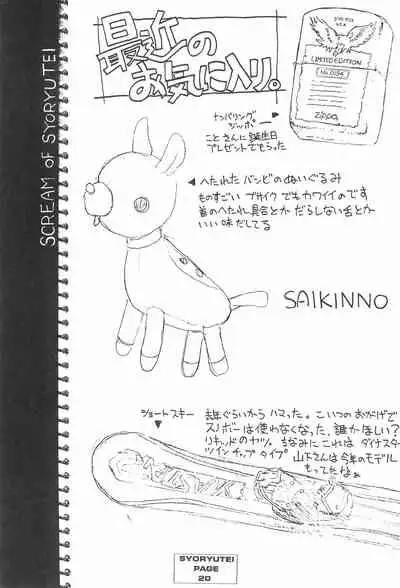 SCREAM of SYORYUTEI
最近の
お気に入り。
SYO RYU
U.S.A.
LIMITED EDITION
No.0134
ZIPPO
ナンバリング
ジッポー
ことさんに誕生日
プレゼントでもらった
へたれたバンビのぬいぐるみ
ものすごいブサイクでもカワイイのです
首のへたれ具合とかだらしない舌とか
いい味だしてる
SAIKINNO
ショートスキー
去年ぐらいからハマった。こいつのおかげで
スノボーは使わなくなった、誰かほしい?
リキッドのヤツ。ちなみにこれはダイナスター
ツインチップタイプ 山下さんは今年のモデル
もってたなぁ
SYORYUTEI
PAGE
20